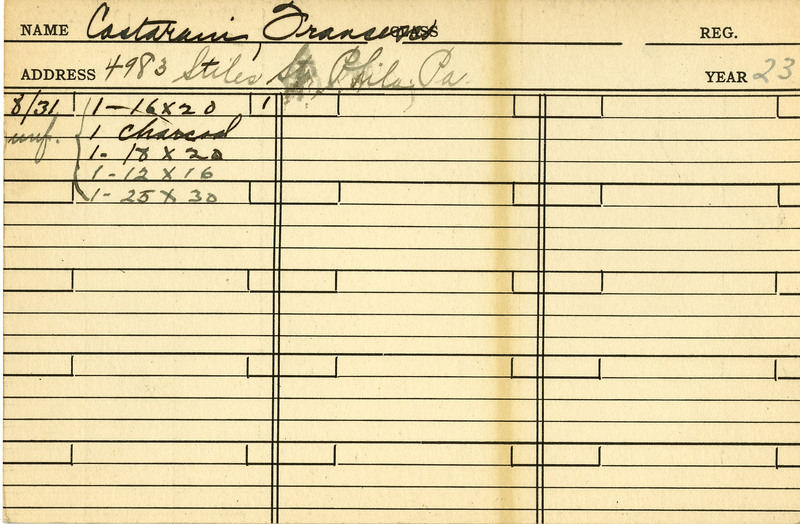 NAME Castarani, CLASS REG.
ADDRESS 4983 Stiles St., Phila, Pa. YEAR 23
8/31 1-16x20 1
unf. 1 charcoal
1-18 x 20
1-12 x 16
1-25 x 30